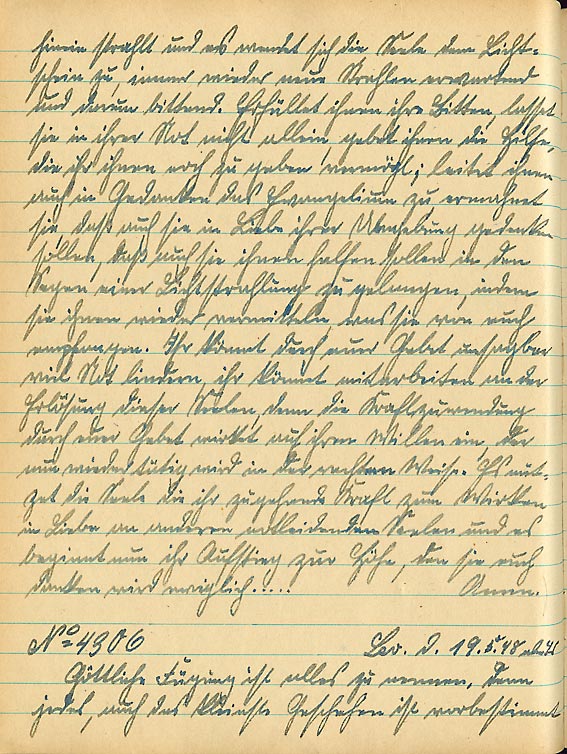 hinein strahlt und es wendet sich die Seele dem Licht-
schein zu, immer wieder neue Strahlen erwartend
und darum bittend. Erfüllet ihnen ihre Bitten, lasset
sie in ihrer Not nicht allein, gebet ihnen die Hilfe,
die ihr ihnen noch zu geben vermögt; leitet ihnen
auch in Gedanken das Evangelium zu, ermahnet
sie daß auch sie in Liebe ihrer Umgebung gedenken
sollen, daß auch sie ihnen helfen sollen in den
Segen einer Lichtstrahlung zu gelangen, indem
sie ihnen wieder vermitteln, was sie von euch
empfangen. Ihr könnt durch euer Gebet unsagbar
viel Not lindern, ihr könnet mitarbeiten an der
Erlösung dieser Seelen, denn die Kraftzuwendung
durch euer Gebet wirket auf ihren Willen ein, der
nun wieder tätig wird in der rechten Weise. Es nüt-
zet die Seele die ihr zugehende Kraft zum Wirken
in Liebe an anderen notleidenden Seelen und es
beginnt nun ihr Aufstieg zur Höhe, den sie euch
danken wird ewiglich.....          Amen.
No 4306          19.5.48
Göttliche Fügung ist alles zu nennen, denn
jedes, auch das kleinste Geschehen ist vorbestimmt